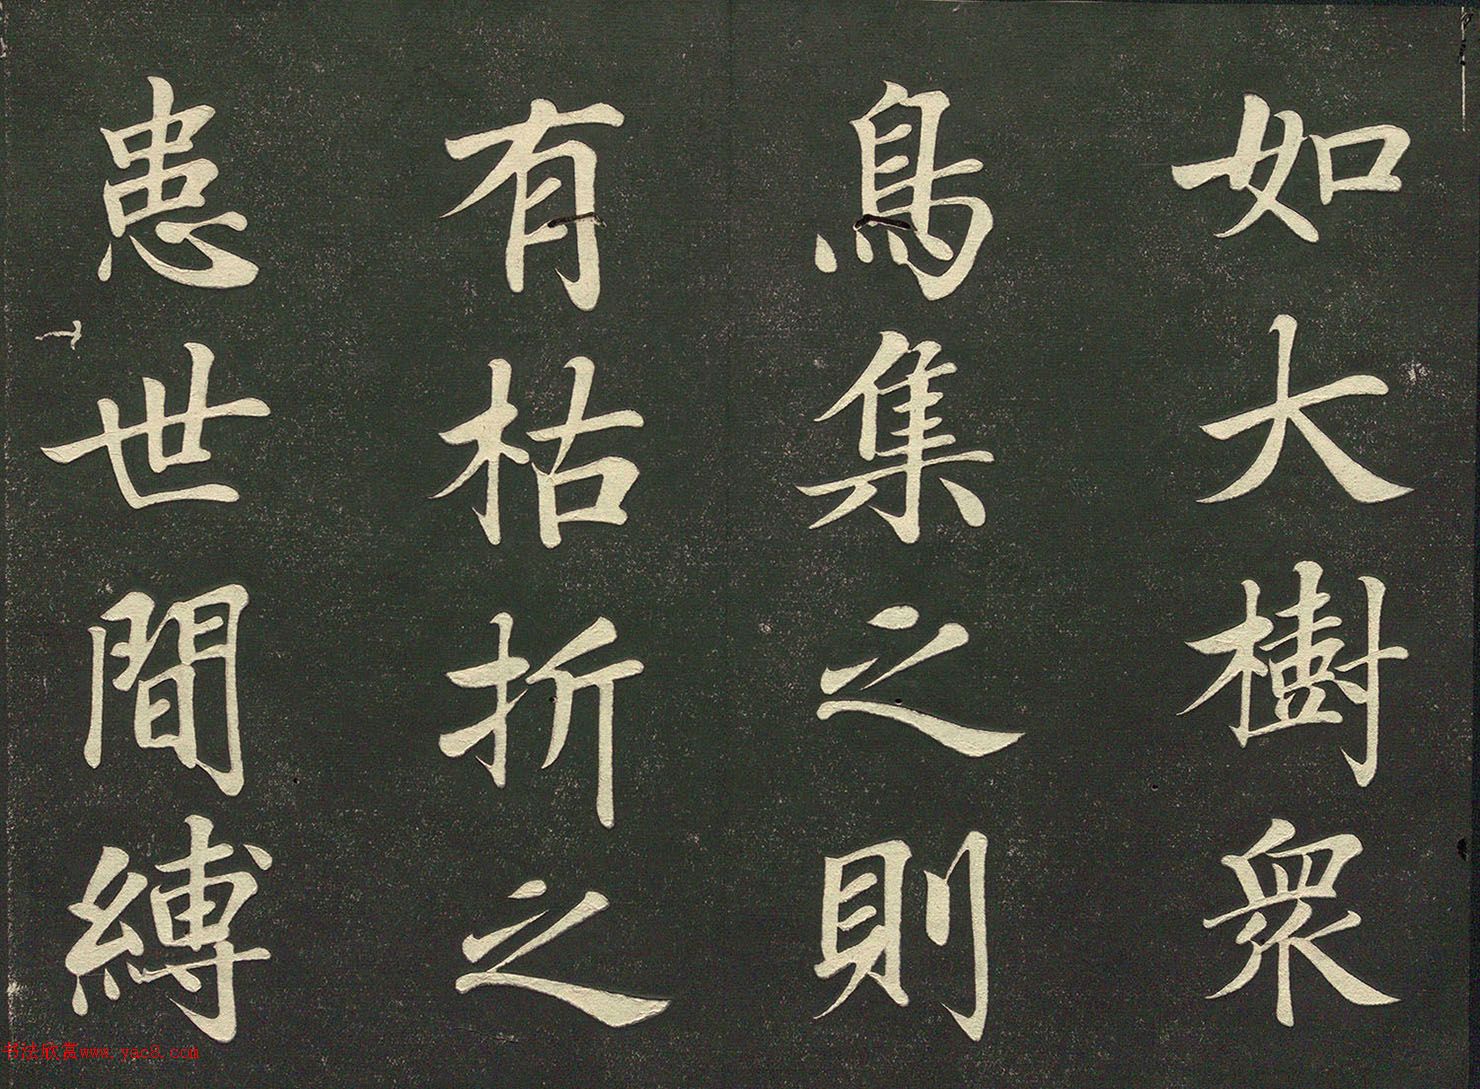 如大樹衆
鳥集之則
有枯折之
患世間縛
书法欣赏www.yac8.com